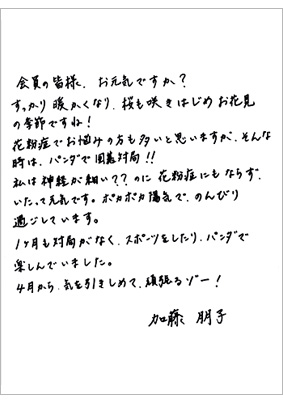 会員の皆様、お元気ですか？
すっかり暖かくなり、桜も咲きはじめお花見
の季節ですね！
花粉症でお悩みの方も多いと思いますが、そんな
時は、パンダで囲碁対局！！
私は神経が細い？？のに花粉症にもならず、
いたって元気です。ポカポカ陽気で、のんびり
過ごしています。
1ヶ月も対局がなく、スポーツをしたり、パンダで
楽しんでいました。
4月から、気を引きしめて、頑張るゾー！
加藤 朋子